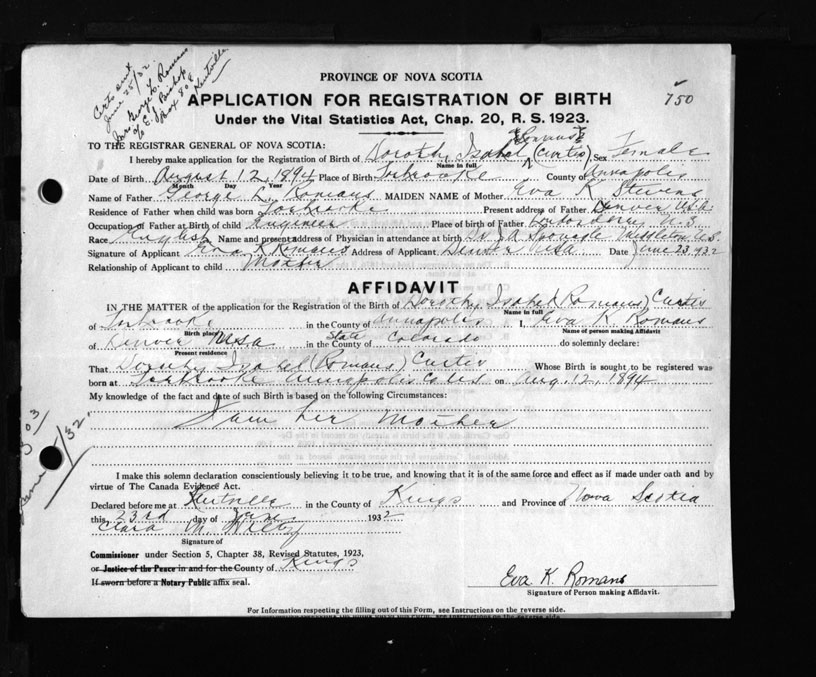 Certs sent
June 25/32
Mrs George L. Romans
c/o E. J. Bishop
Box 808
Kentville
PROVINCE OF NOVA SCOTIA
APPLICATION FOR REGISTRATION OF BIRTH
750
Under the Vital Statistics Act, Chap. 20, R. S. 1923.
TO THE REGISTRAR GENERAL OF NOVA SCOTIA:
Romans
I hereby make application for the Registration of Birth of Dorothy Isabel (Curtis) Sex Female
Name in full
Date of Birth August 12, 1894 Place of Birth Torbrooke County of Annapolis
Month Day Year
Name of Father George L. Romans MAIDEN NAME of Mother Eva K Stevens
Name in full
Residence of Father when child was born Torbrooke Present address of Father Denver U.S.A.
Occupation of Father at Birth of child Engineer Place of birth of Father Londonderry N.S.
Race English Name and present address of Physician in attendance at birth Dr J A Sponagle Middleton N.S.
Signature of Applicant Eva K Romans Address of Applicant Denver USA Date June 23 1932
Relationship of Applicant to child Mother
AFFIDAVIT
IN THE MATTER of the application for the Registration of the Birth of Dorothy Isabel (Romans) Curtis
Name in full
of Torbrooke in the County of Annapolis I, Eva K Romans
Birth place Name of person making Affidavit
of Denver USA in the County of State Colorado do solemnly declare:
Present residence
That Dorothy Isabel (Romans) Curtis Whose Birth is sought to be registered was
born at Torbrooke Annapolis Co N.S. on Aug. 12, 1894
My knowledge of the fact and date of such Birth is based on the following Circumstances:
I am her mother
I make this solemn declaration conscientiously believing it to be true, and knowing that it is of the same force and effect as if made under oath and by
virtue of The Canada Evidence Act.
Declared before me at Kentville in the County of Kings and Province of Nova Scotia
this 23rd day of June 1932
Clara M. Wilby
Signature of
Commissioner under Section 5, Chapter 38, Revised Statutes, 1923,
or Justice of the Peace in and for the County of Kings
If sworn before a Notary Public affix seal.
Eva K. Romans
Signature of Person making Affidavit.
For Information respecting the filling out of this Form, see Instructions on the reverse side.